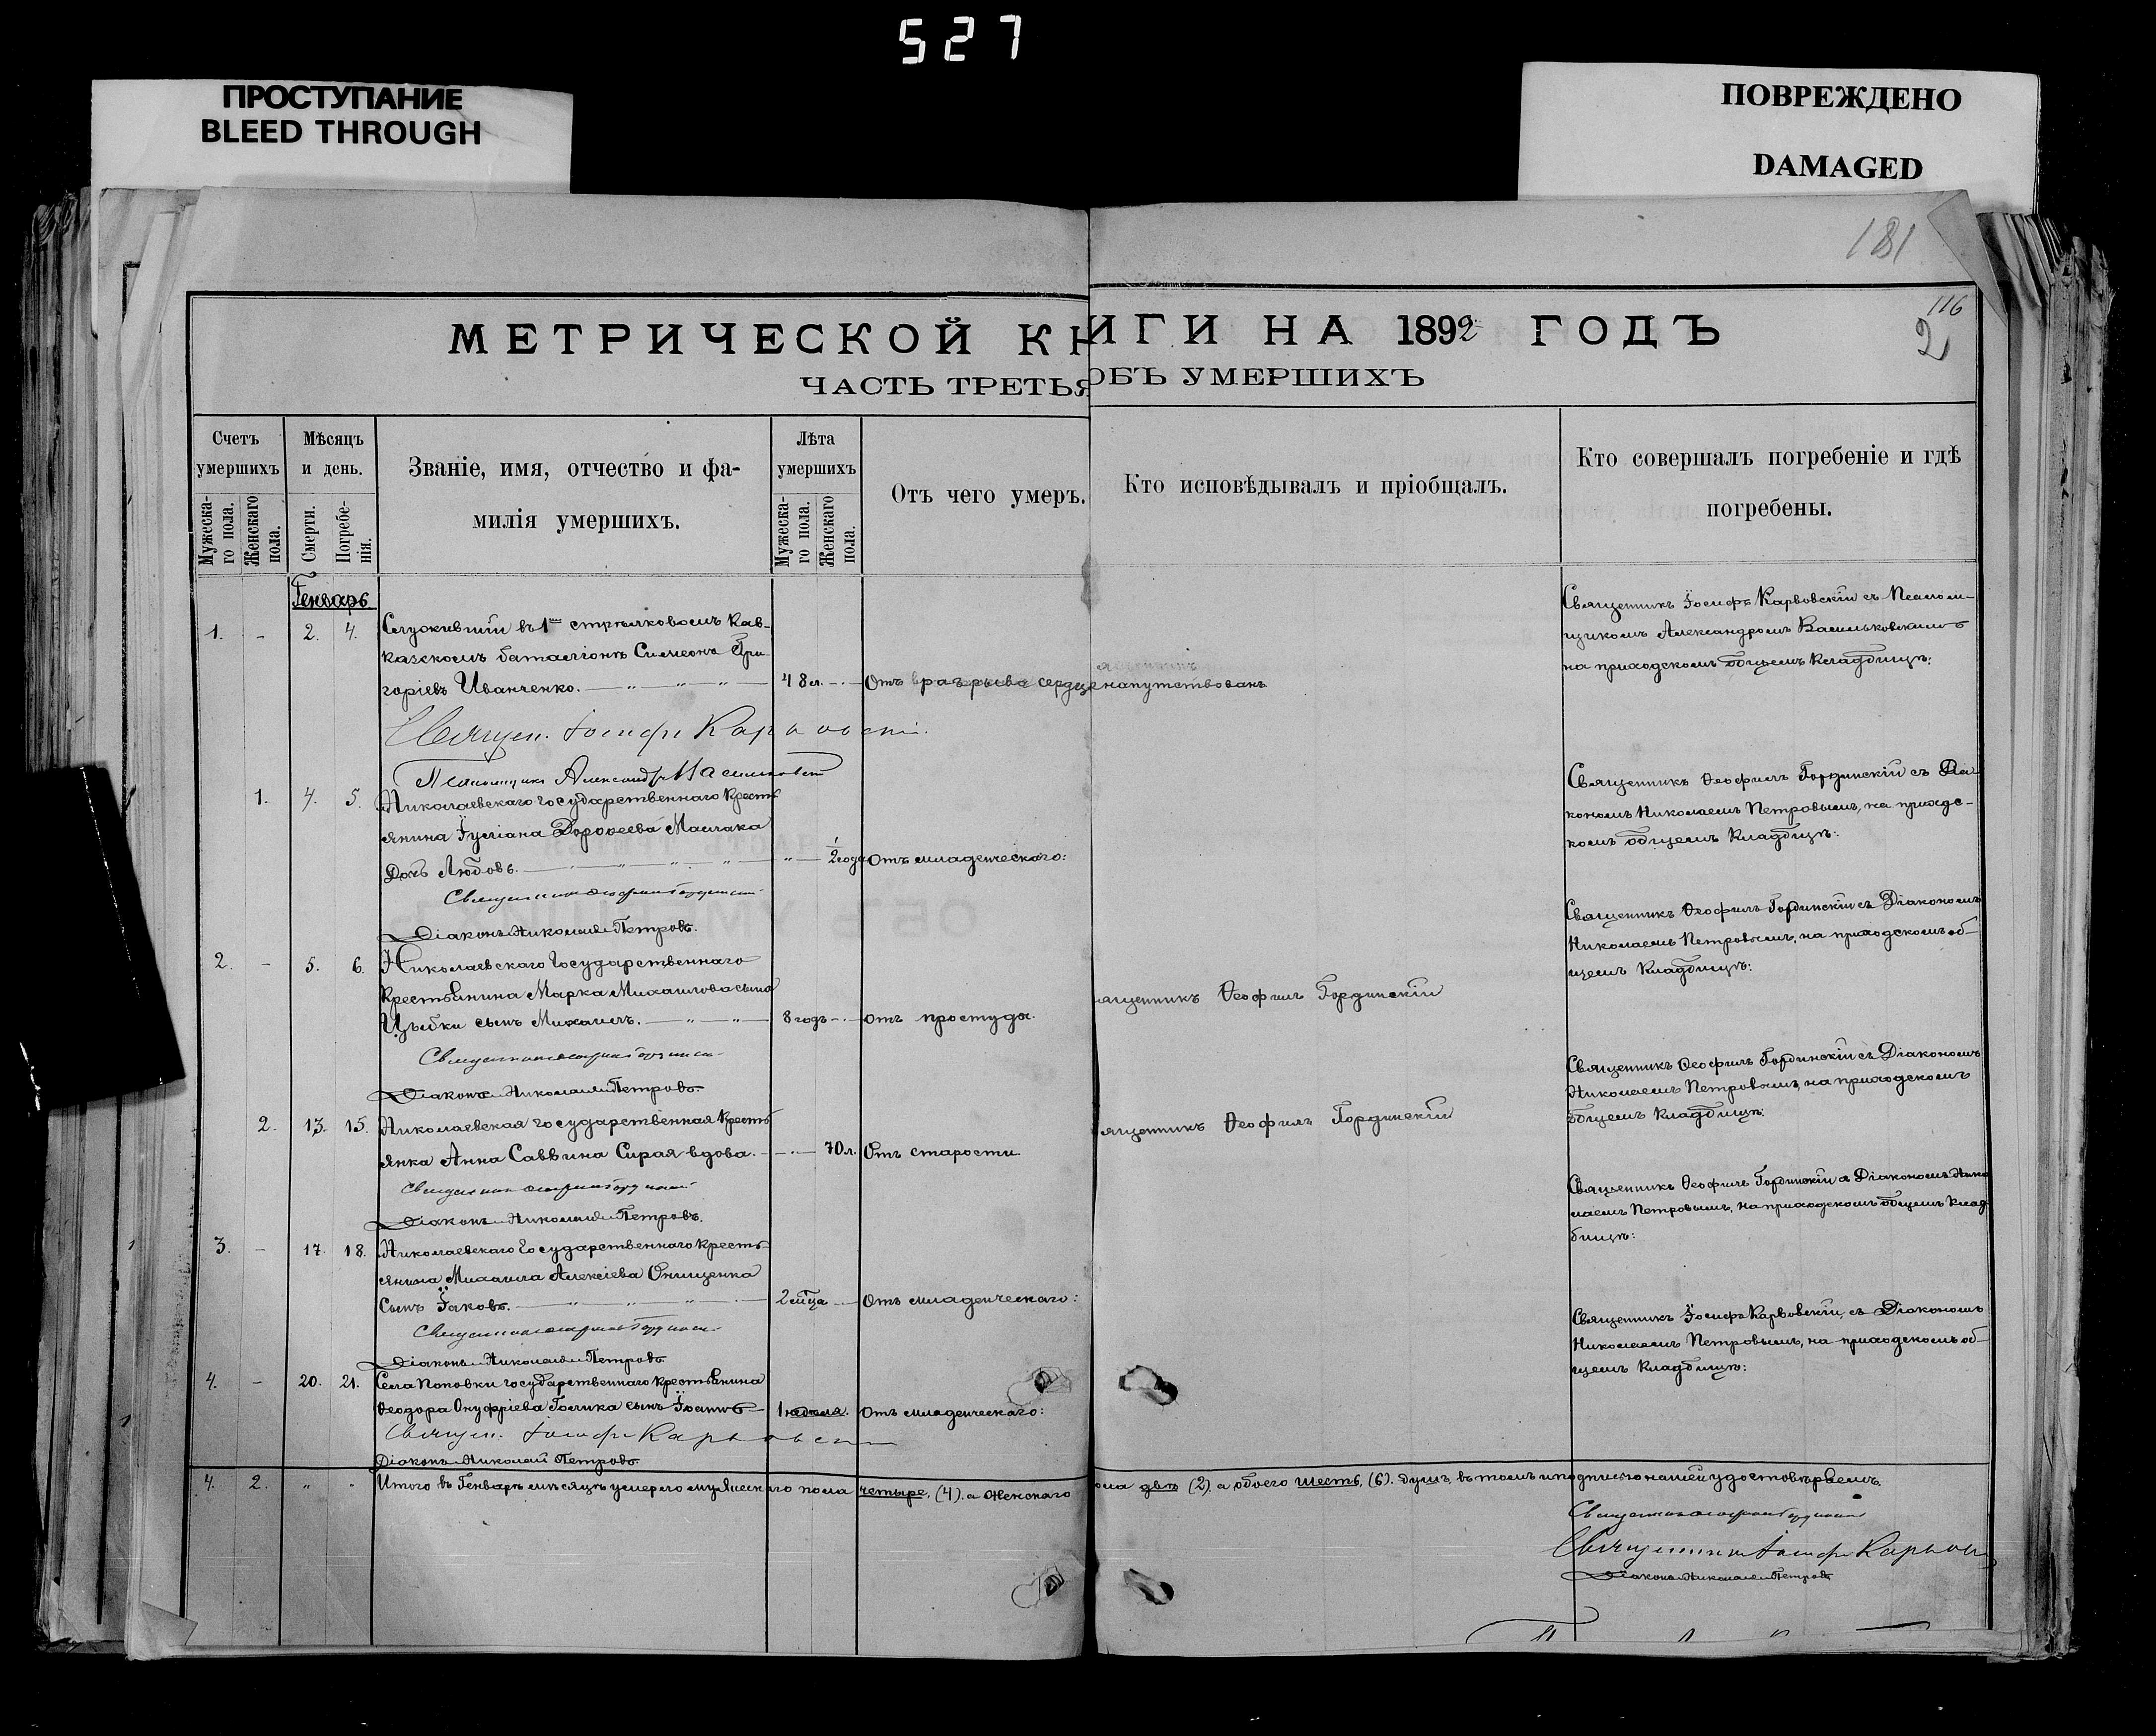 527
ПРОСТУПАНИЕ
BLEED THROUGH
ПОВРЕЖДЕНО
DAMAGED
181
116
2
МЕТРИЧЕСКОЙ КНИГИ НА 1892 ГОДЪ
ЧАСТЬ ТРЕТЬЯ ОБЪ УМЕРШИХЪ
Счетъ умершихъ
Мужеска-
го пола.
Женскаго
пола.
Мѣсяцъ
и день.
Смерти.
Погребе-
нія.
Званіе, имя, отчество и фа-
милія умершихъ.
Лѣта
умершихъ
Мужеска-
го пола.
Женскаго
пола.
Отъ чего умеръ.
Кто исповѣдывалъ и пріобщалъ.
Кто совершалъ погребеніе и гдѣ
погребены.
Генварь
1. - 2. 4. Служившій въ 1мъ стрѣлковомъ Кав-
казскомъ баталіонѣ Симеонъ Гри
горіевъ Иванченко. 48 л. Отъ разрыва сердца напутствованъ
Священникъ Іосифъ Карвовскій съ Псалом-
щикомъ Александромъ Васильковскимъ
на приходскомъ общемъ кладбищѣ:
Священ. Іосифъ Карвовскій.
Псаломщикъ Александръ Васильковскій
1. 4. 5. Николаевскаго государственнаго кресть
янина Іуліана Дороѳеева Маслака
дочь Любовь. 1/2 года Отъ младенческаго:
Священникъ Ѳеофилъ Гординскій съ Діа
кономъ Николаемъ Петровымъ, на приходс-
комъ общемъ кладбищѣ:
Священникъ Ѳеофилъ Гординскій
Діаконъ Николай Петровъ.
2. - 5. 6. Николаевскаго Государственнаго
крестьянина Марка Михаилова сына
Цыбки сынъ Михаилъ. 8 годъ отъ простуды.
ященникъ Ѳеофилъ Гординскій
Священникъ Ѳеофилъ Гординскій съ Діакономъ
Николаемъ Петровымъ, на приходскомъ об-
щемъ кладбищѣ:
Священникъ Ѳеофилъ Гординскій
Діаконъ Николай Петровъ.
2. 13. 15. Николаевская государственная кресть
янка Анна Саввина Сирая вдова. 70 л. Отъ старости
ященникъ Ѳеофилъ Гординскій
Священникъ Ѳеофилъ Гординскій съ Діакономъ
Николаемъ Петровымъ, на приходскомъ
общемъ кладбищѣ:
Священникъ Ѳеофилъ Гординскій
Діаконъ Николай Петровъ.
3. - 17. 18. Николаевскаго Государственнаго кресть-
янина Михаила Алексіева Онищенка
сынъ Іаковъ. 2 мѣца Отъ младенческаго:
Священникъ Ѳеофилъ Гординскій съ Діакономъ Нико
лаемъ Петровымъ, на приходскомъ общемъ клад
бищѣ:
Священникъ Ѳеофилъ Гординскій
Діаконъ Николай Петровъ
4. - 20. 21. Села Поповки государственнаго крестьянина
Ѳеодора Онуфріева Голика сынъ Іоаннъ 1 недѣля. Отъ младенческаго:
Священникъ Іосифъ Карвовскій, съ Діакономъ
Николаемъ Петровымъ, на приходскомъ об-
щемъ кладбищѣ:
Священ. Іосифъ Карвовскій
Діаконъ Николай Петровъ.
4. 2. " " Итого въ Генварѣ мѣсяцѣ умерло мужескаго пола четыре, (4). а женскаго пола двѣ (2). а обоего шесть, (6). душъ, въ томъ и подписью нашей удостовѣряемъ.
Священникъ Ѳеофилъ Гординскій
Священникъ Іосифъ Карвовскій
Діаконъ Николай Петровъ